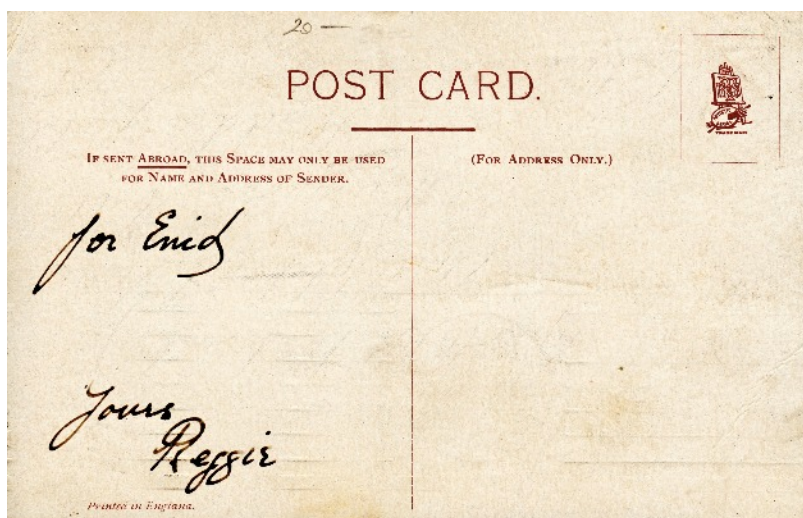 20 —
POST CARD.
IF SENT ABROAD, THIS SPACE MAY ONLY BE USED
FOR NAME AND ADDRESS OF SENDER.
(FOR ADDRESS ONLY.)
for Enid
Yours
Reggie
Printed in England.
TRADE MARK